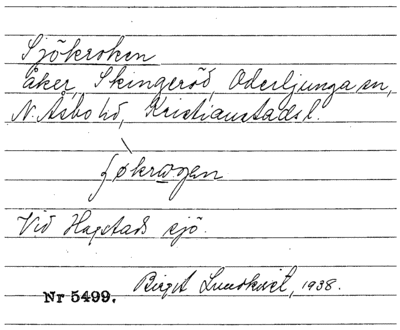 Sjökroken
Åker, Skingeröd, Oderljunga sn,
N. Åsbo hd, Kristianstads l.
ʃøkrωgen
Vid Hagstads sjö.
Birgit Lundkvist, 1938.
Nr 5499.